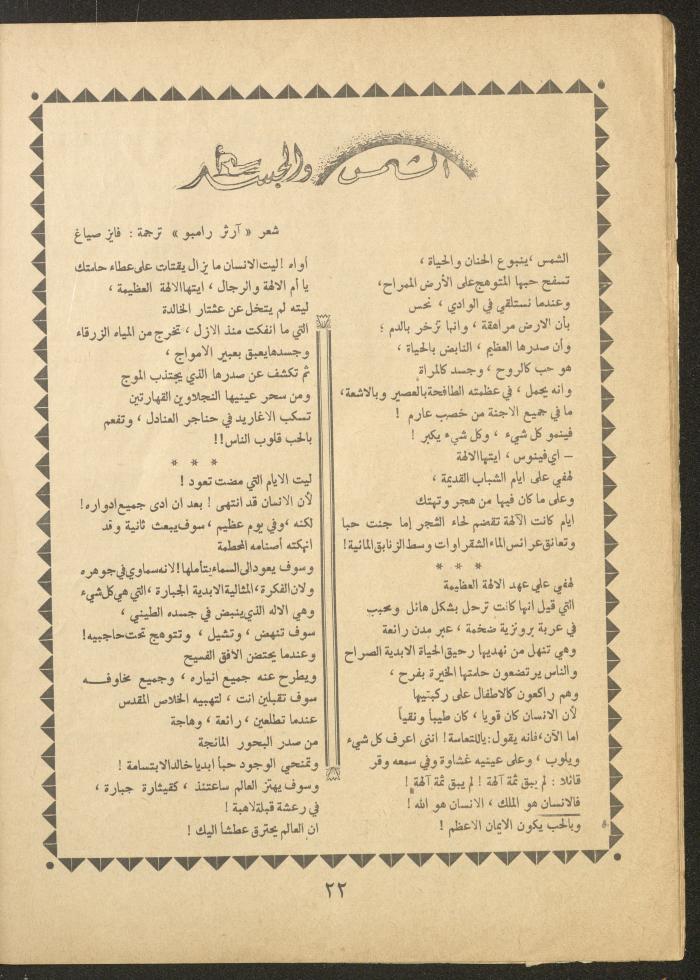 الشمس والجسد
شعر « آرثر رامبو » ترجمة : فايز صياغ
الشمس ، ينبوع الحنان والحياة ،
تسفح حبها المتوهج على الأرض الممراح ،
وعندما نستلقي في الوادي ، نحس
بأن الارض مراهقة ، وانها تزخر بالدم ؛
وأن صدرها العظيم ، النابض بالحياة ،
هو حب كالروح ، وجسد كالمراة
وانه يحمل ، في عظمته الطافحة بالعصير وبالاشعة ،
ما في جميع الاجنة من خصب عارم !
فينمو كل شيء ، وكل شيء يكبر !
– اي فينوس ، ايتها الالهة
لهفي على ايام الشباب القديمة ،
وعلى ما كان فيها من هجر وتهتك
ايام كانت الآلهة تقضم لحاء الشجر إما جنت حبا
وتعانق عرائس الماء الشقراوات وسط الزنابق المائية !
* * *
لهفي على عهد الالهة العظيمة
التي قيل انها كانت ترحل بشكل هائل ومحبب
في عربة برونزية ضخمة ، عبر مدن رائعة
وهي تنهل من نهديها رحيق الحياة الابدية الصراح
والناس يرتضعون حلمتها الخيرة بفرح ،
وهم راكعون كالاطفال على ركبتيها
لأن الانسان كان قويا ، كان طيباً ونقياً
اما الآن ، فانه يقول : ياللتعاسة ! انني اعرف كل شيء
ويلوب ، وعلى عينيه غشاوة وفي سمعه وقر
قائلا : لم يبق ثمة آلهة ! لم يبق ثمة آلهة !
فالانسان هو الملك ، الانسان هو الله !
وبالحب يكون الايمان الاعظم !
أواه ! ليت الانسان ما يزال يقتات على عطاء حلمتك
يا أم الالهة والرجال ، ايتها الالهة العظيمة ،
ليته لم يتخل عن عشتار الخالدة
التي ما انفكت منذ الازل ، تخرج من المياه الزرقاء
وجسدها يعبق بعبير الامواج ،
ثم تكشف عن صدرها الذي يجتذب الموج
ومن سحر عينيها النجلاوين القهارتين
تسكب الاغاريد في حناجر العنادل ، وتفعم
بالحب قلوب الناس !!
* * *
ليت الايام التي مضت تعود !
لأن الانسان قد انتهى ! بعد ان ادى جميع ادواره !
لكنه ، وفي يوم عظيم ، سوف يبعث ثانية وقد
انهكته أصنامه المحطمة
وسوف يعود الى السماء بتأملها ! لانه سماوي في جوهره
ولان الفكرة ، المثالية الابدية الجبارة ، التي هي كل شيء
وهي الاله الذي ينبض في جسده الطيني ،
سوف تنهض ، وتشيل ، وتتوهج تحت حاجبيه !
وعندما يحتضن الافق الفسيح
ويطرح عنه جميع انياره ، وجميع مخاوفه
سوف تقبلين انت ، لتهبيه الخلاص المقدس
عندما تطلعين ، رائعة ، وهاجة
من صدر البحور المائجة
وتمنحي الوجود حباً ابديا خالد الابتسامة !
وسوف يهتز العالم ساعتئذ ، كقيثارة جبارة ،
في رعشة قبلة لاهبة !
ان العالم يحترق عطشا اليك !
٢٢